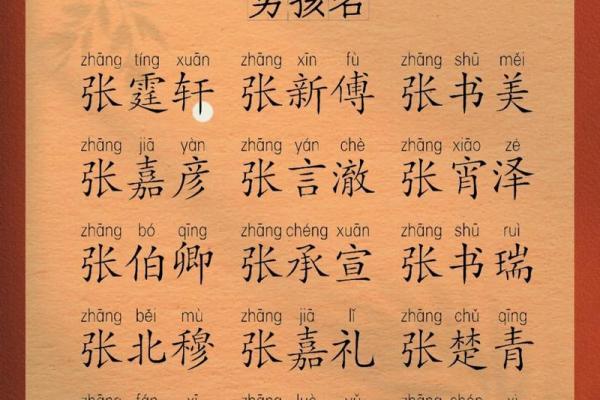 男孩名
zhāng tíng xuān zhāng xīn fù zhāng shū měi
张霆轩 张新傅 张书美
zhāng jiā yàn zhāng yán chè zhāng xiāo zé
张嘉彦 张言澈 张宵泽
zhāng bó qīng zhāng chéng xuān zhāng shū ruì
张伯卿 张承宣 张书瑞
zhāng běi mù zhāng jiā lǐ zhāng chǔ qīng
张北穆 张嘉礼 张楚青